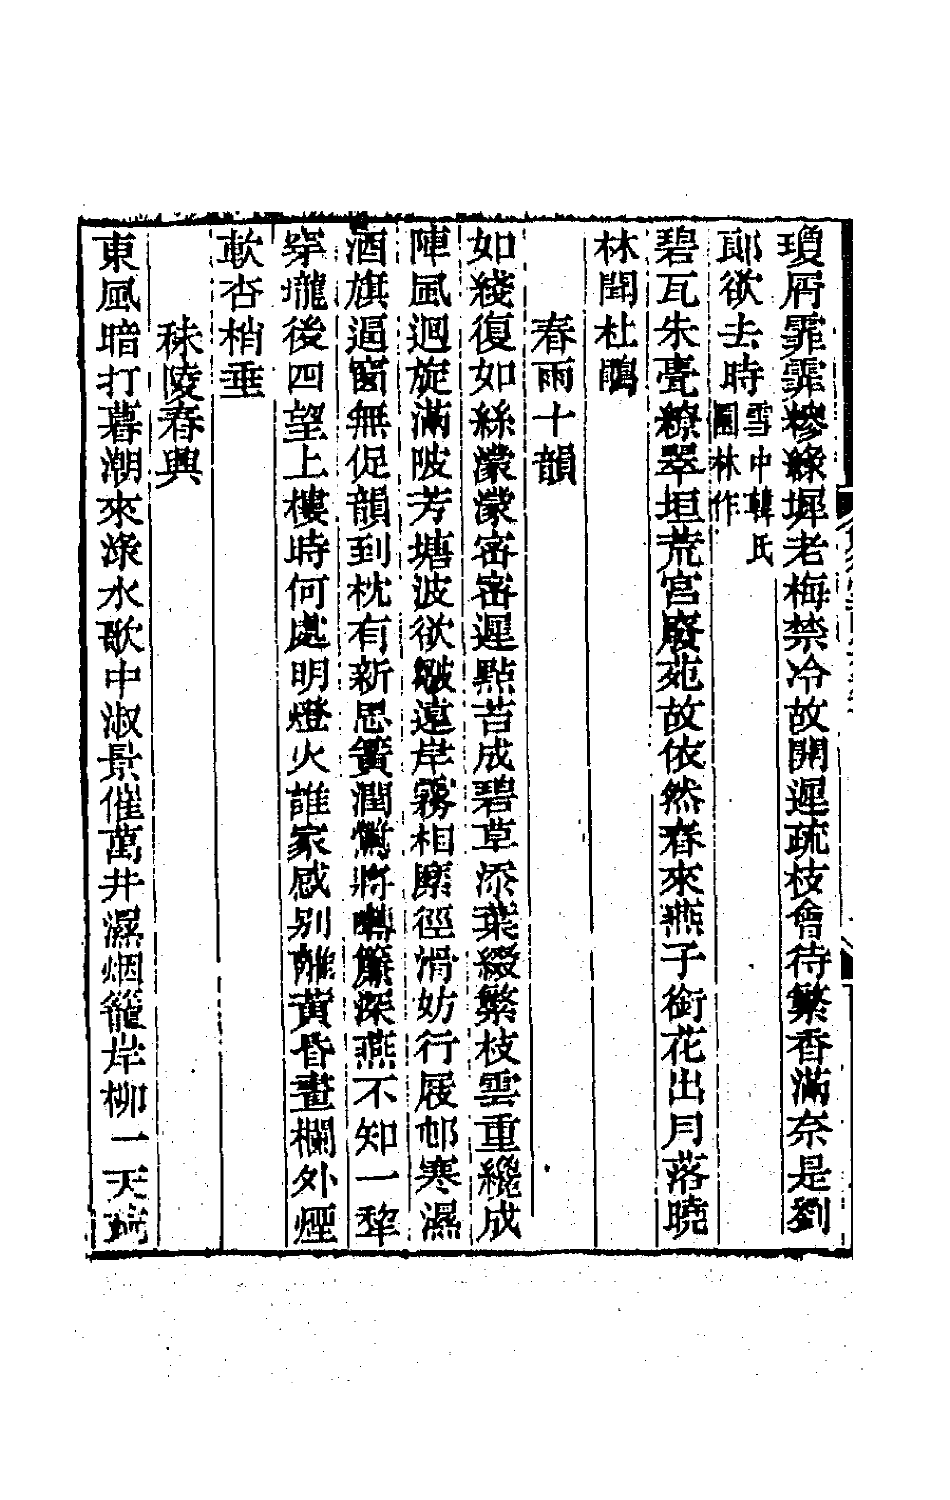 瓊屑霏霏糝綠墀老梅禁冷故開遲疏枝會待繁香滿奈是劉
郎欲去時雪中韓氏園林作
碧瓦朱甍繚翠垣荒宮廢苑故依然春來燕子銜花出月落曉
林聞杜鵑
春雨十韻
如綫復如絲濛濛密密遲點苔成碧草添葉綴繁枝雲重纔成
陣風迴旋滿陂芳塘波欲皺遠岸霧相縻徑滑妨行屐帷寒濕
酒旗逼窗無促韻到枕有新思簧潤鶯將囀簾深燕不知一犂
穿壠後四望上樓時何處明燈火誰家感别離黃昏畫欄外煙
軟杏梢垂
秣陵春興
東風暗打暮潮來淥水歌中淑景催萬井濕烟籠岸柳一天